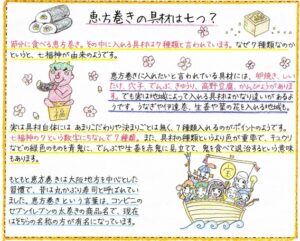 恵方巻きの具材は七つ？
節分に食べる恵方巻き。その中に入れる具材は7種類と言われています。なぜ7種類なのか
というと、七福神が由来のようです。
恵方巻きに入れたいと言われている具材には、卵焼き、しい
たけ、穴子、でんぶ、きゅうり、高野豆腐、かんぴょうがありま
す。でも実は地域によって入れる具材はかなり違いがあるよ
うです。うなぎや伊達巻、生姜や菜の花を入れる地域も。
福
実は具材自体にはあまりこだわりや決まりごとは無く、7種類入れるのがポイントのようです。
七福神の7という数字にちなんで7種類。また、具材の種類というより色が重要で、キュウリ
などの緑色のものを青鬼に、でんぶや生姜を赤鬼に見立てて、鬼を食べて退治するという意味
もあります。
もともと恵方巻きは大阪地方を中心とした
習慣で、昔は丸かぶり寿司と呼ばれてい
ました。恵方巻きという言葉は、コンビニの
セブンイレブンの太巻きの商品名で、現在
はそちらの名称の方が有名になっています。